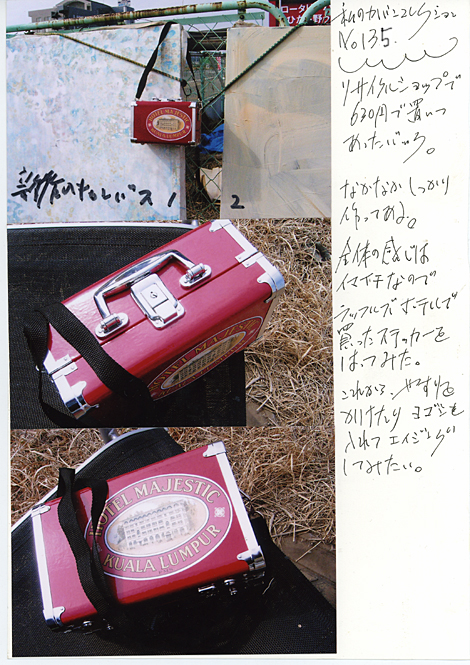 私のカバンコレクション
No.135.
リサイクルショップで
630円で置いて
あった
なかなかしっかり
作ってある。
全体の感じは
イマイチなので
ラッフルズホテルで
買ったステッカーを
はってみた。
これから、やすりを
かけたりヨゴシを
入れてエイジング
してみたい。
1
2
HOTEL MAJESTIC
KUALA LUMPUR
HOTEL MAJESTIC
KUALA LUMPUR